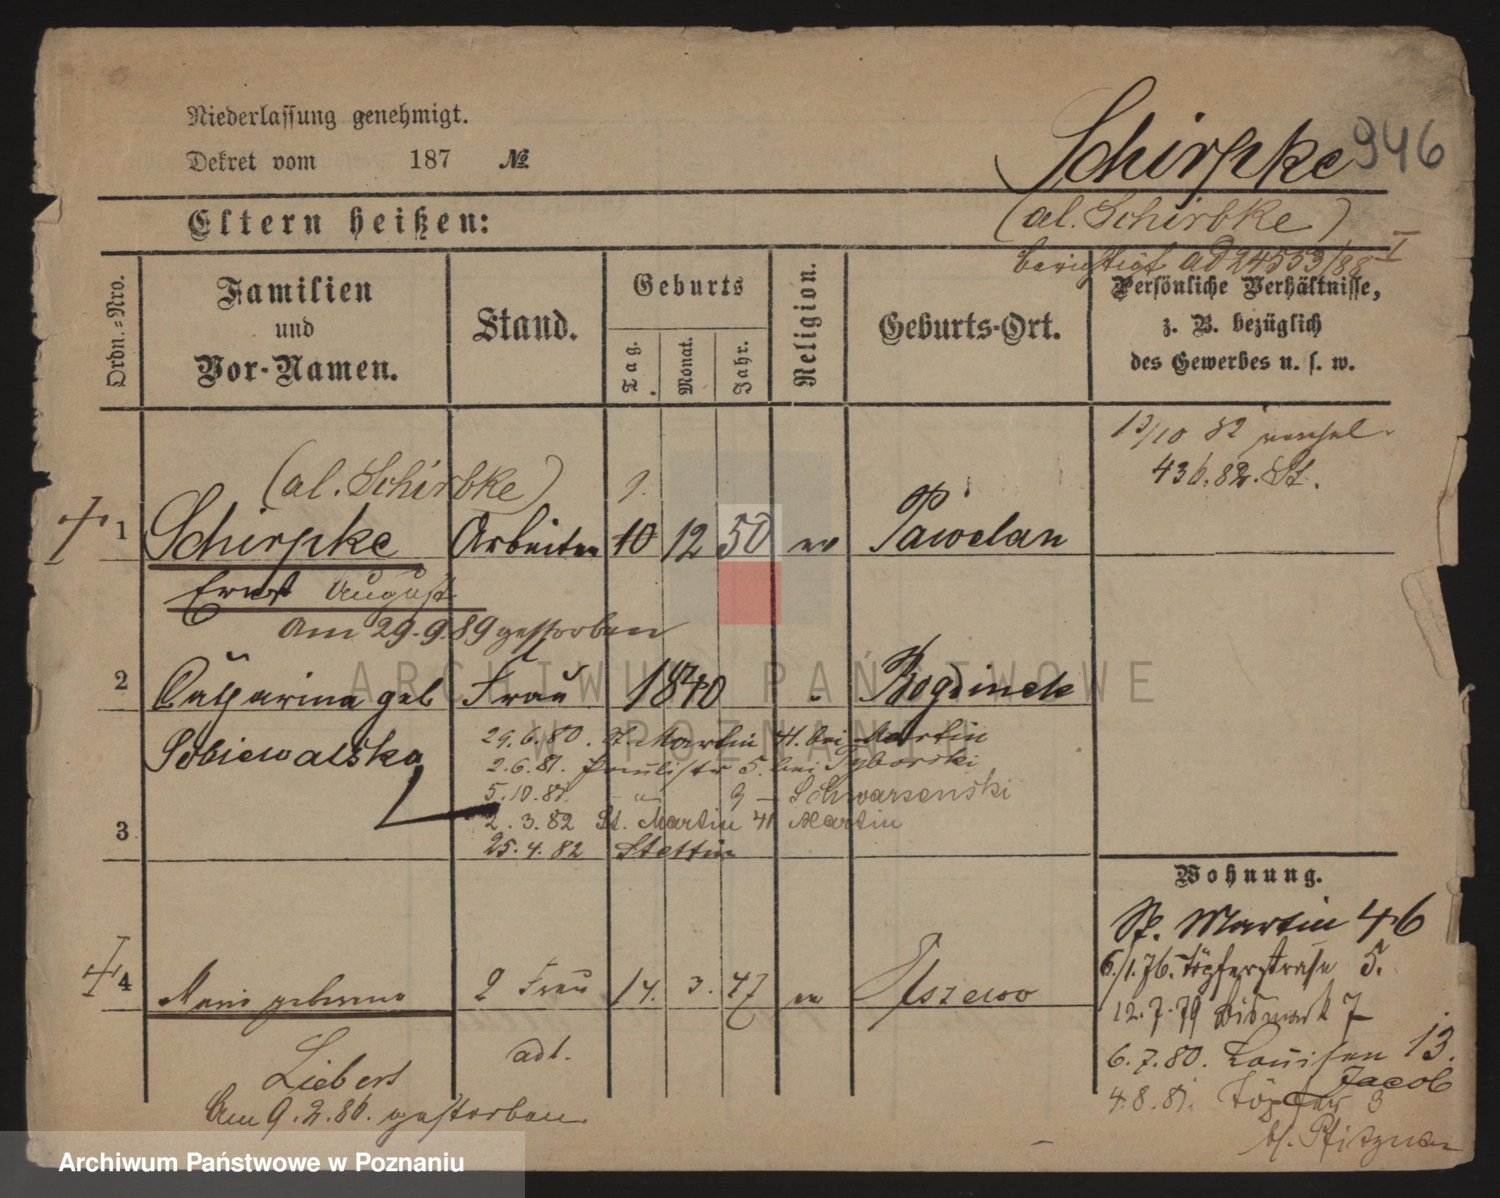 Niederlassung genehmigt.
Dekret vom 187 №
Schirpke 946
Eltern heißen:
(al. Schirbke)
berichtigt ad 24553/88 I
Ordn.-Nro.
Familien und Vor-Namen.
Stand.
Geburts
Tag. Monat. Jahr.
Religion.
Geburts-Ort.
Persönliche Verhältnisse, z. B. bezüglich des Gewerbes u. s. w.
13/10 82
436.82. St.
(al. Schirbke) 9.
1 Schirpke Arbeiter 10 12 50 ev Pawelan
Ernst August
Am 29.9.89 gestorben
2 Catharina geb Frau 1840 " Rogzinek
Sobiewalska
29.6.80. St. Martin 41. bei Martin
2.6.81. Paulistr 5. bei Syborski
5.10.81. - " - 9 - Schwarsenski
3
2.3.82 St. Martin 41 Martin
25.4.82 Stettin
Wohnung.
St. Martin 46
6/1.76. Töpferstraße 5.
12.7.79 Bismark 7
6.7.80. Louisen 13.
Jacob
4.8.81. Töpfer 3
bf. Pfitzner
4 Marie geborene 2 Frau 14. 3. 47 ev
adt.
Liebert
Am 9.2.86. gestorben.
ARCHIWUM PAŃSTWOWE
W POZNANIU
Archiwum Państwowe w Poznaniu